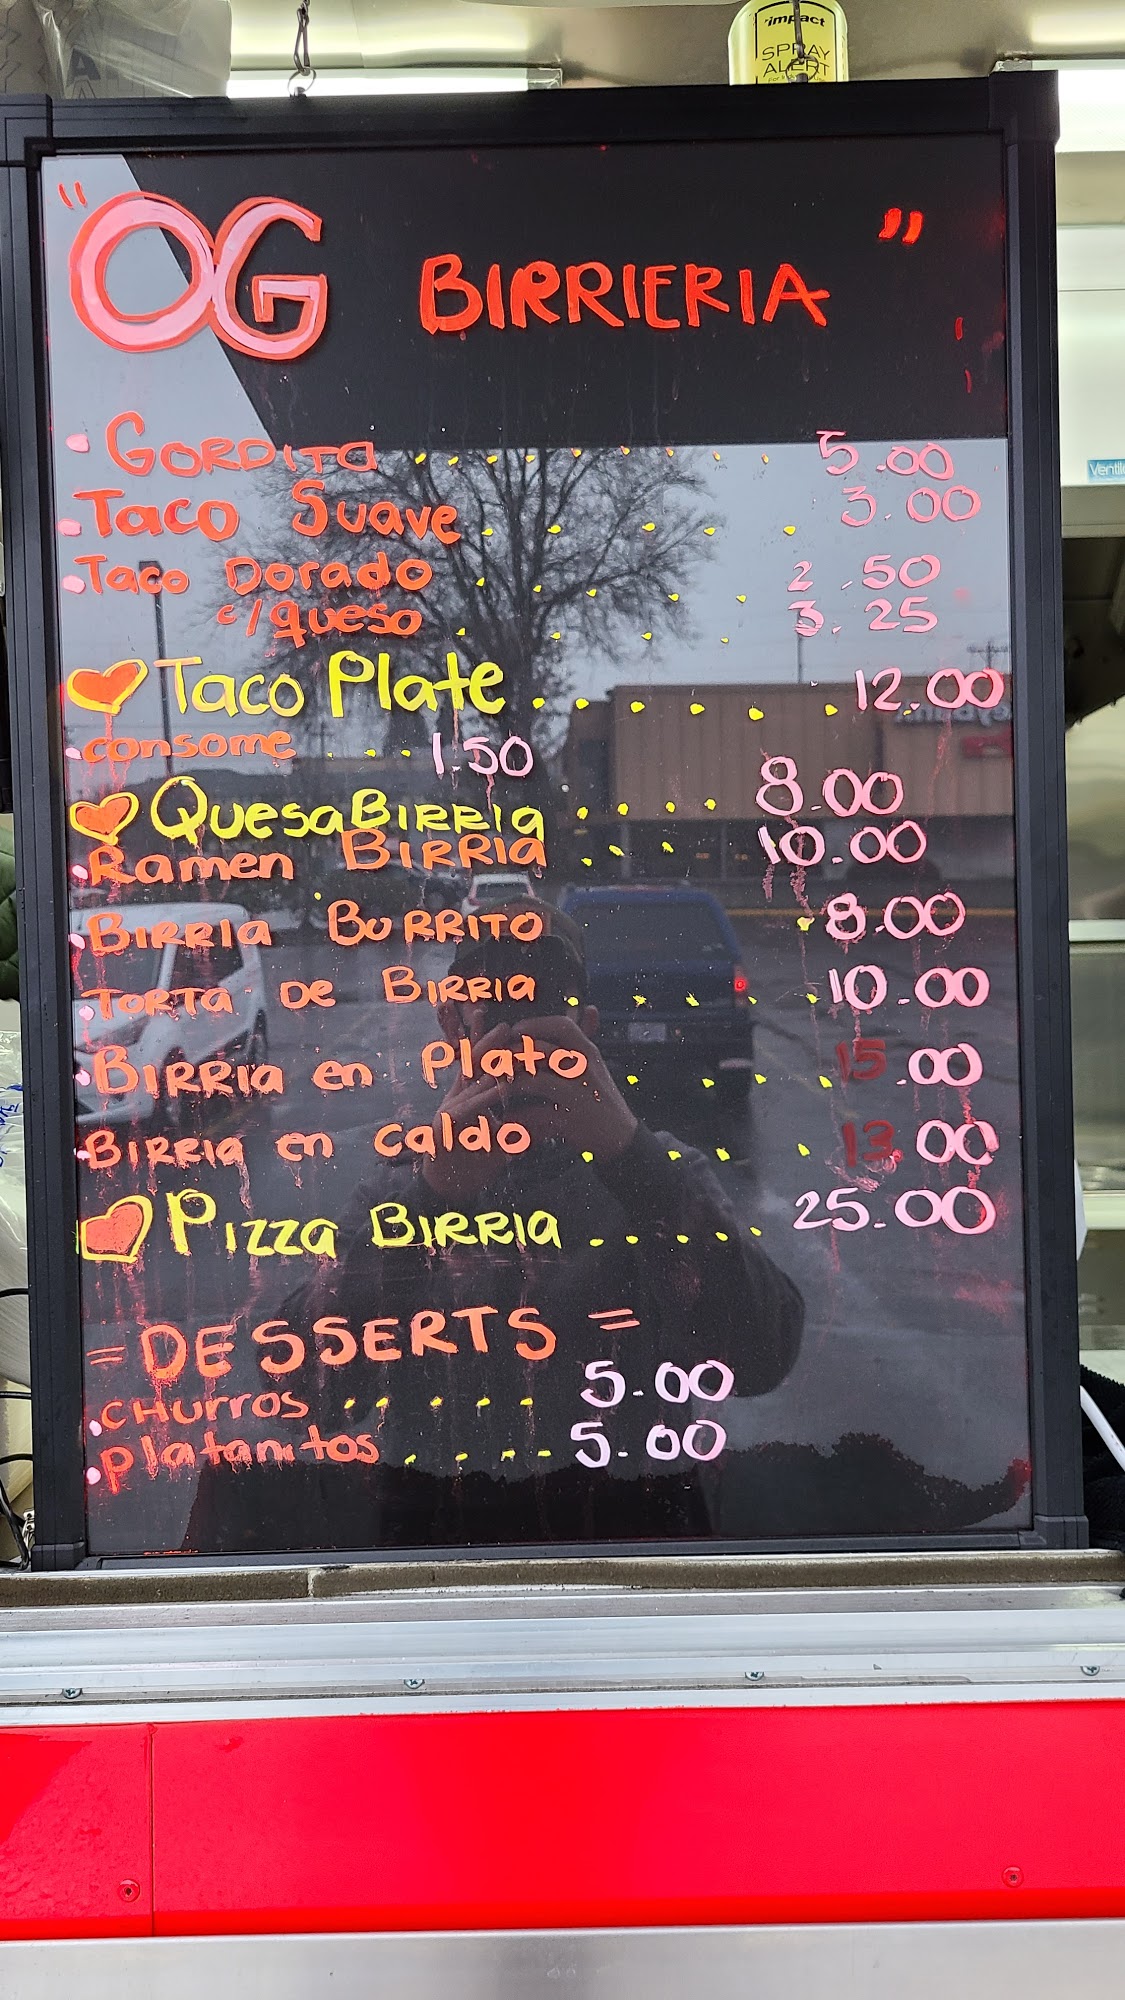 impact
SPRAY
ALERT
"OG BIRRIERIA"
Ventil
• GORDITA ......... 5.00
• Taco Suave ..... 3.00
• Taco Dorado ..... 2.50
c/queso ..... 3.25
Taco Plate ...... 12.00
• consome .... 1.50
QuesaBIRRIA .... 8.00
• Ramen BIRRIA ... 10.00
• BIRRIA BURRITO . 8.00
• TORTA DE BIRRIA ..... 10.00
• BIRRIA en Plato ..... 15.00
• BIRRIA en caldo .... 13.00
PIZZA BIRRIA ...... 25.00
= DESSERTS =
• CHURROS ..... 5.00
• platanitos .... 5.00